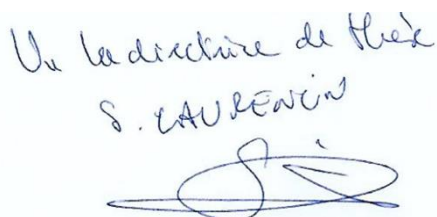 Vu la directrice de thèse
S. LAURENCIN